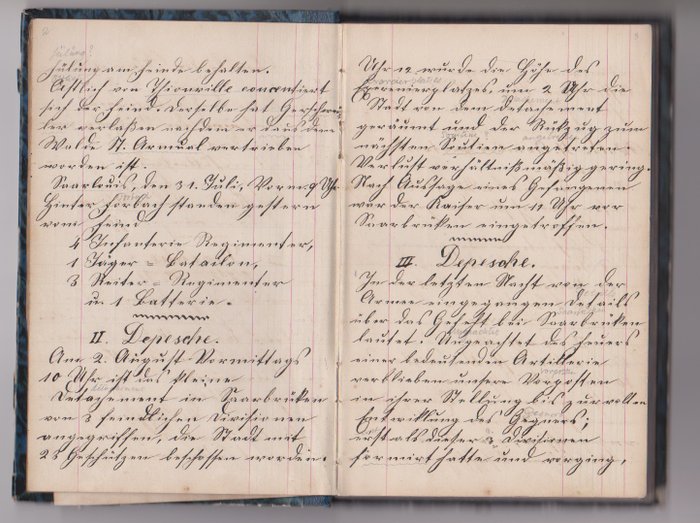 2
Fühlung?
Fühlung am Feinde behalten.
Östlich von Thionville concentriert
sich der Feind. Derselbe hat Gerschwei-
ler verlaßen nachdem er aus dem
Walde St. Arnual vertrieben
worden ist.
Saarlouis, den 31. Juli, Vorm. 9 Uhr
Hinter Forbach standen gestern
vom Feind
4 Infanterie Regimenter,
1 Jäger = Batailon,
3 Reiter = Regimenter
u. 1 Batterie.
II. Depesche.
Am 2. August Vormittags
10 Uhr ist das kleine
Detachement in Saarbrüken
von 3 feindlichen Divisionen
angegriffen, die Stadt mit
23 Geschützen beschossen worden.
3
Uhr 12 wurde die Höhe des
Exerzierplatzes
Exerzierplatzes, um 2 Uhr die
Stadt von dem Detachement
geräumt und der Rükzug zum
nächsten Soutien angetreten.
Verlust verhältnißmäßig gering.
Nach Aussage eines Gefangenen
war der Kaiser um 11 Uhr vor
Saarbrüken eingetroffen.
III. Depesche.
In der letzten Nacht von der
Armee eingegangen Details
über das Gefecht bei Saarbrüken
lautet. Ungeachtet des Feuers
einer bedeutenden Artillerie
verblieben unsere Vorposten
in ihrer Stellung bis zur vollen
Entwiklung des Gegners;
erst als dieser 3 Divisionen
formirt hatte und vorging,